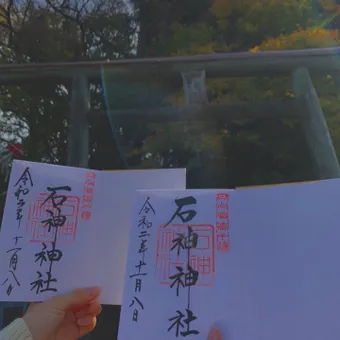 石神神社
令和二年十一月八日
石神神社
令和二年十一月八日